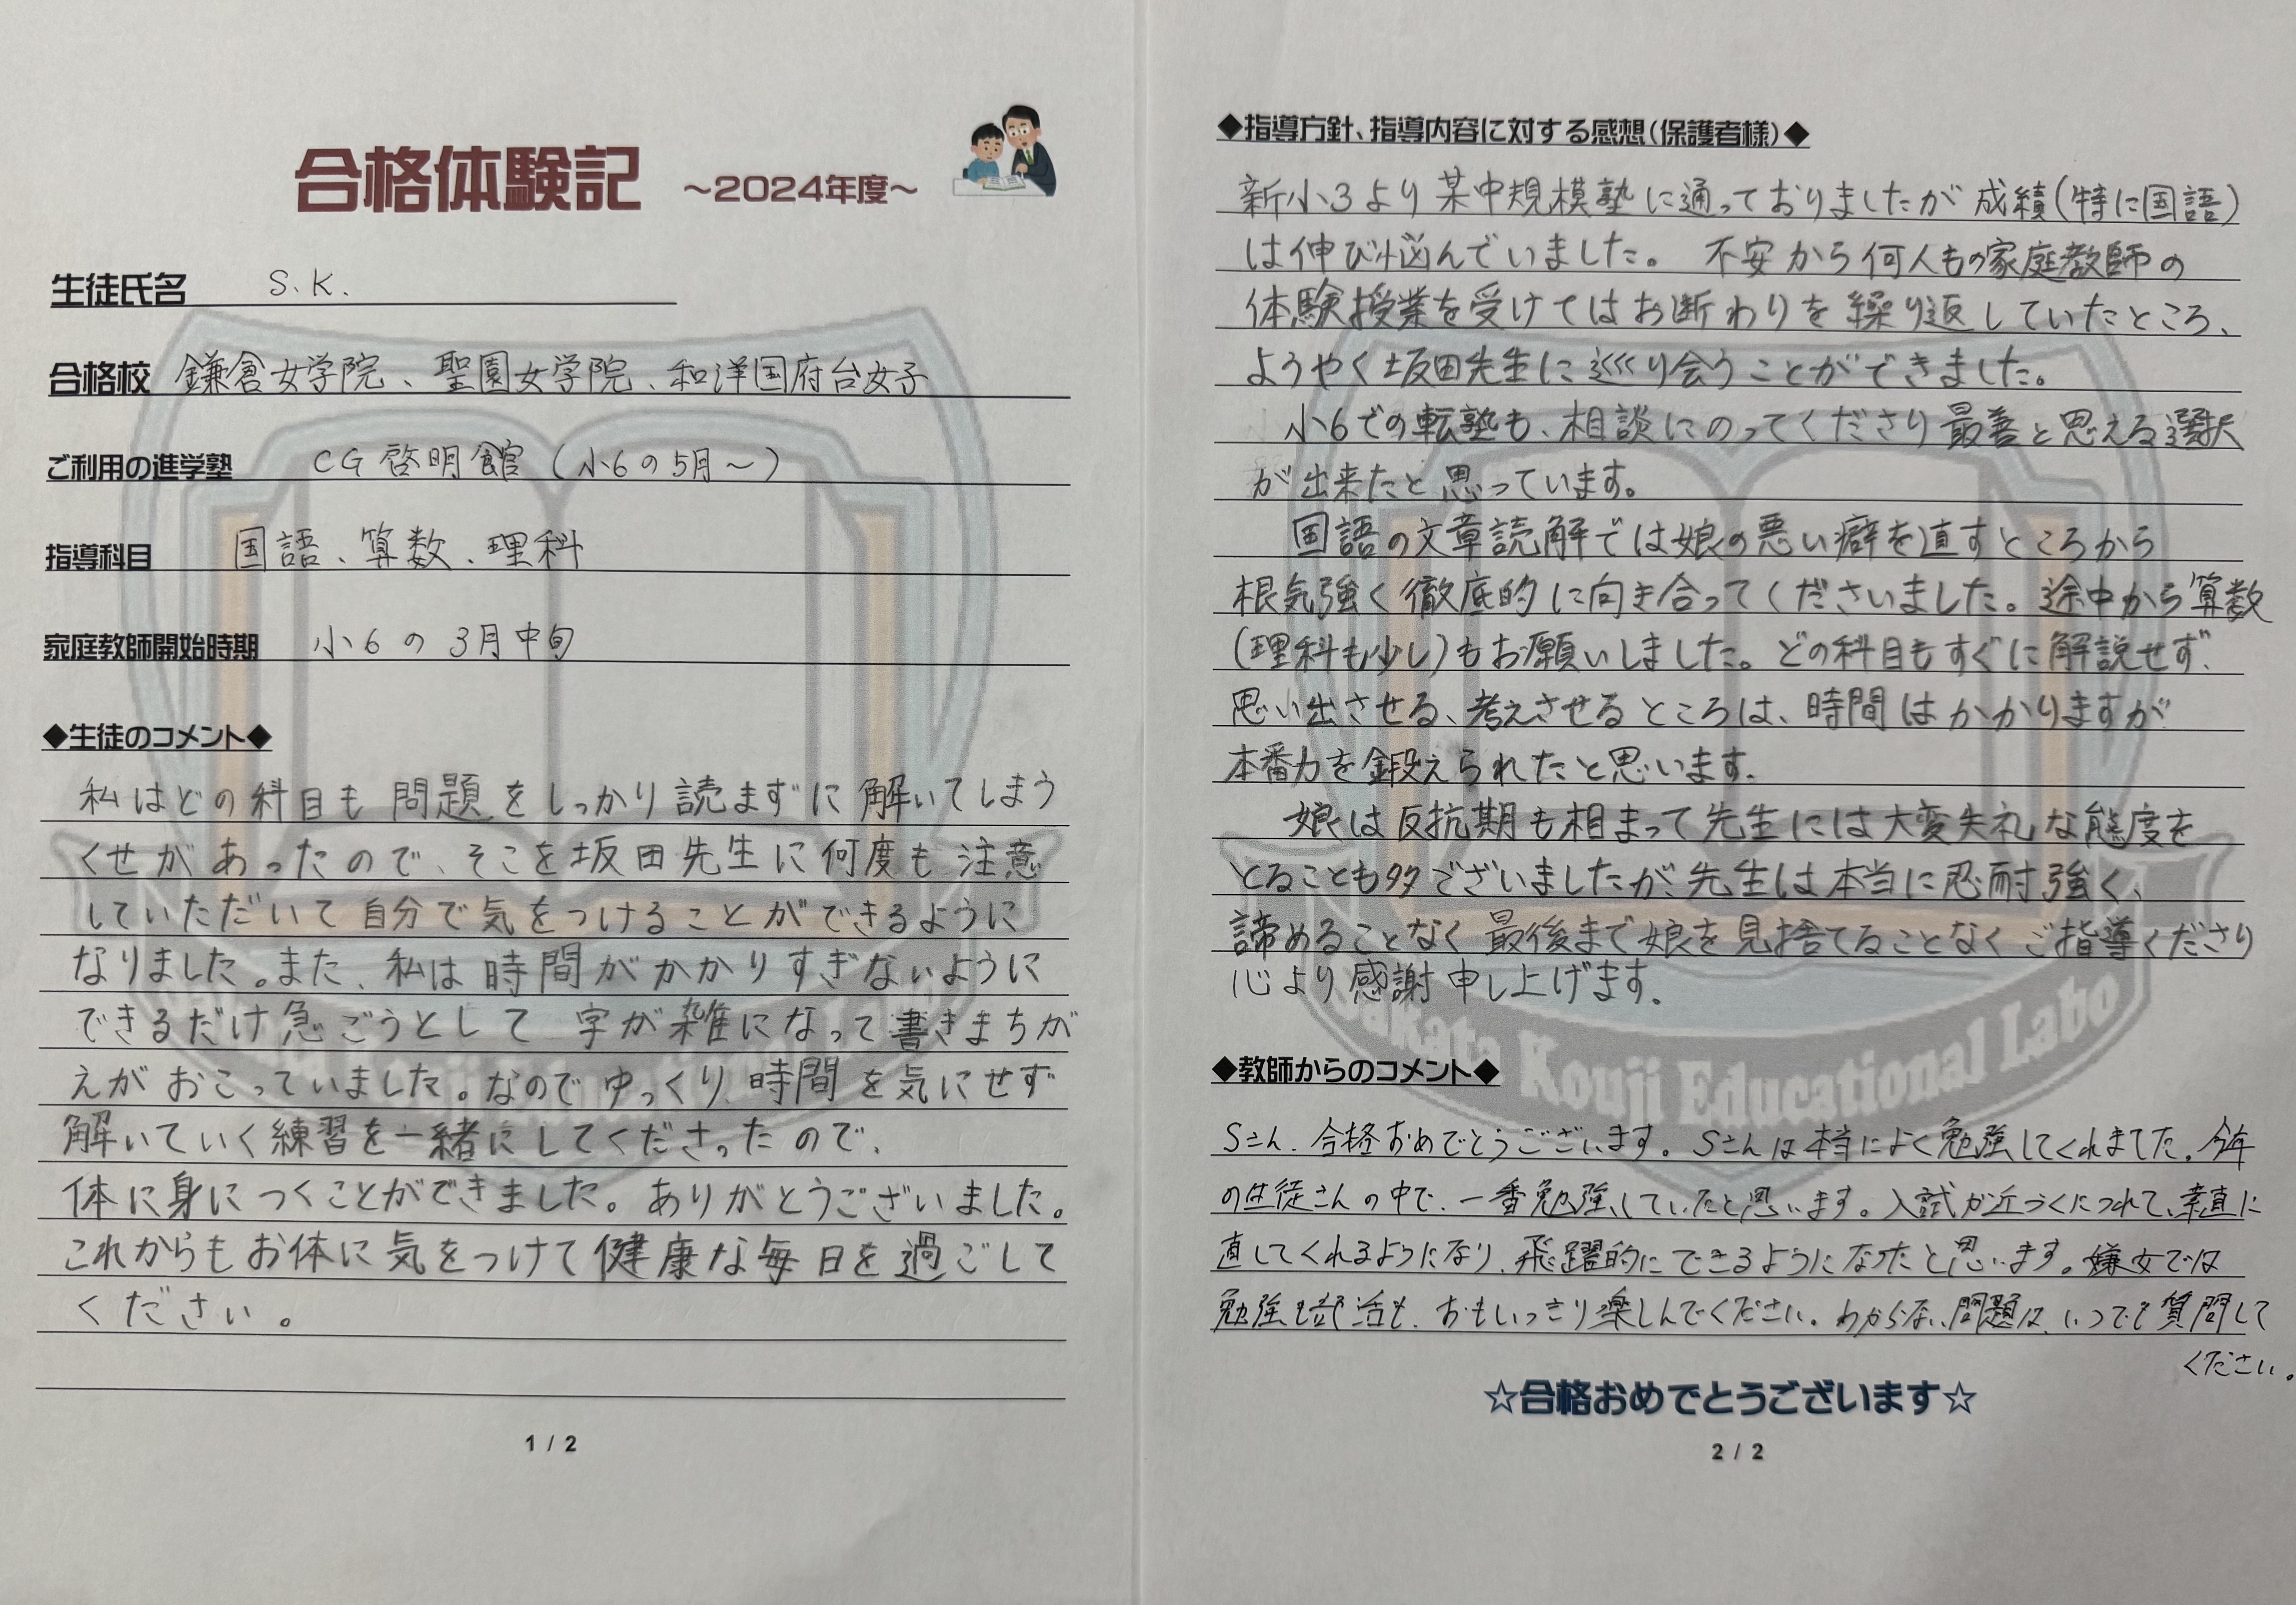 合格体験記 ～2024年度～
生徒氏名 S.K.
合格校 鎌倉女学院、聖園女学院、和洋国府台女子
ご利用の進学塾 CG啓明館(小6の5月～)
指導科目 国語、算数、理科
家庭教師開始時期 小6の3月中旬
◆生徒のコメント◆
私はどの科目も問題をしっかり読まずに解いてしまう
くせがあったので、そこを坂田先生に何度も注意
していただいて自分で気をつけることができるように
なりました。また、私は時間がかかりすぎないように
できるだけ急ごうとして字が雑になって書きまちが
えがおこっていました。なのでゆっくり、時間を気にせず
解いていく練習を一緒にしてくださったので、
体に身につくことができました。ありがとうございました。
これからもお体に気をつけて健康な毎日を過ごして
ください。
1 / 2
◆指導方針、指導内容に対する感想(保護者様)◆
新小3より某中規模塾に通っておりましたが成績(特に国語)
は伸び悩んでいました。不安から何人もの家庭教師の
体験授業を受けてはお断わりを繰り返していたところ、
ようやく坂田先生に巡り会うことができました。
小6での転塾も、相談にのってくださり最善と思える選択
が出来たと思っています。
国語の文章読解では娘の悪い癖を直すところから
根気強く徹底的に向き合ってくださいました。途中から算数
(理科も少し)もお願いしました。どの科目もすぐに解説せず、
思い出させる、考えさせるところは、時間はかかりますが
本番力を鍛えられたと思います。
娘は反抗期も相まって先生には大変失礼な態度を
とることも多々ございましたが先生は本当に忍耐強く、
諦めることなく最後まで娘を見捨てることなくご指導くださり
心より感謝申し上げます。
Sakata Kouji Educational Labo
◆教師からのコメント◆
Sさん、合格おめでとうございます。Sさんは本当によく勉強してくれました。今年
の生徒さんの中で、一番勉強していたと思います。入試が近づくにつれて、素直に
直してくれるようになり、飛躍的にできるようになったと思います。鎌女では
勉強も部活も、おもいっきり楽しんでください。わからない問題は、いつでも質問して
ください。
☆合格おめでとうございます☆
2 / 2